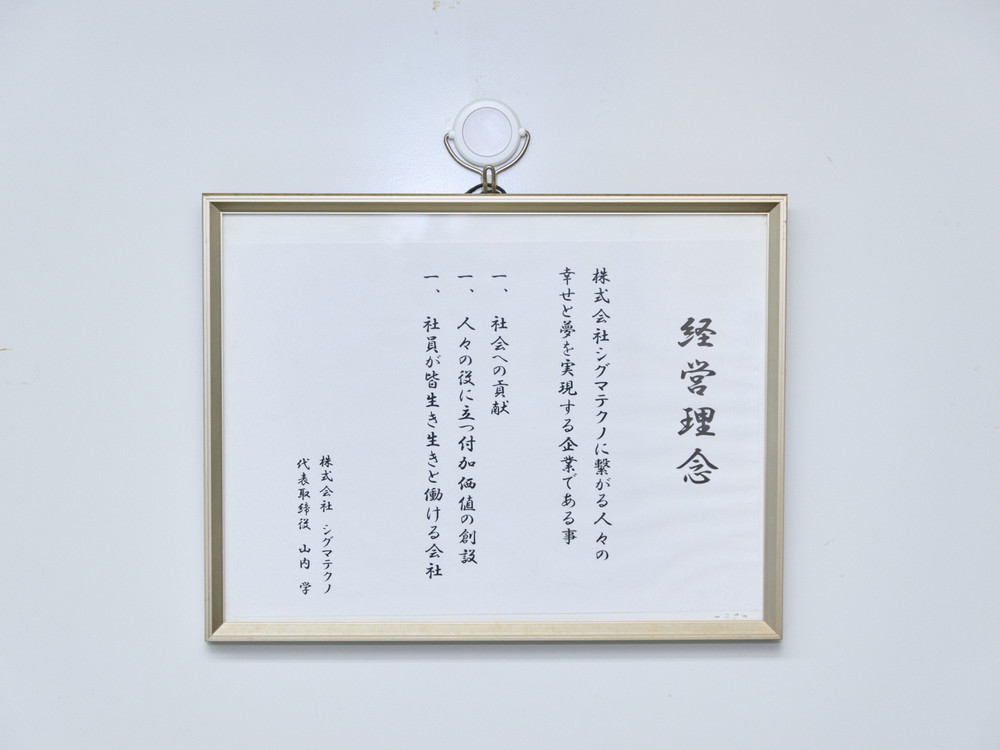 経営理念
株式会社シグマテクノに繋がる人々の
幸せと夢を実現する企業である事
一、社会への貢献
一、人々の役に立つ付加価値の創設
一、社員が皆生き生きと働ける会社
株式会社 シグマテクノ
代表取締役 山内 学